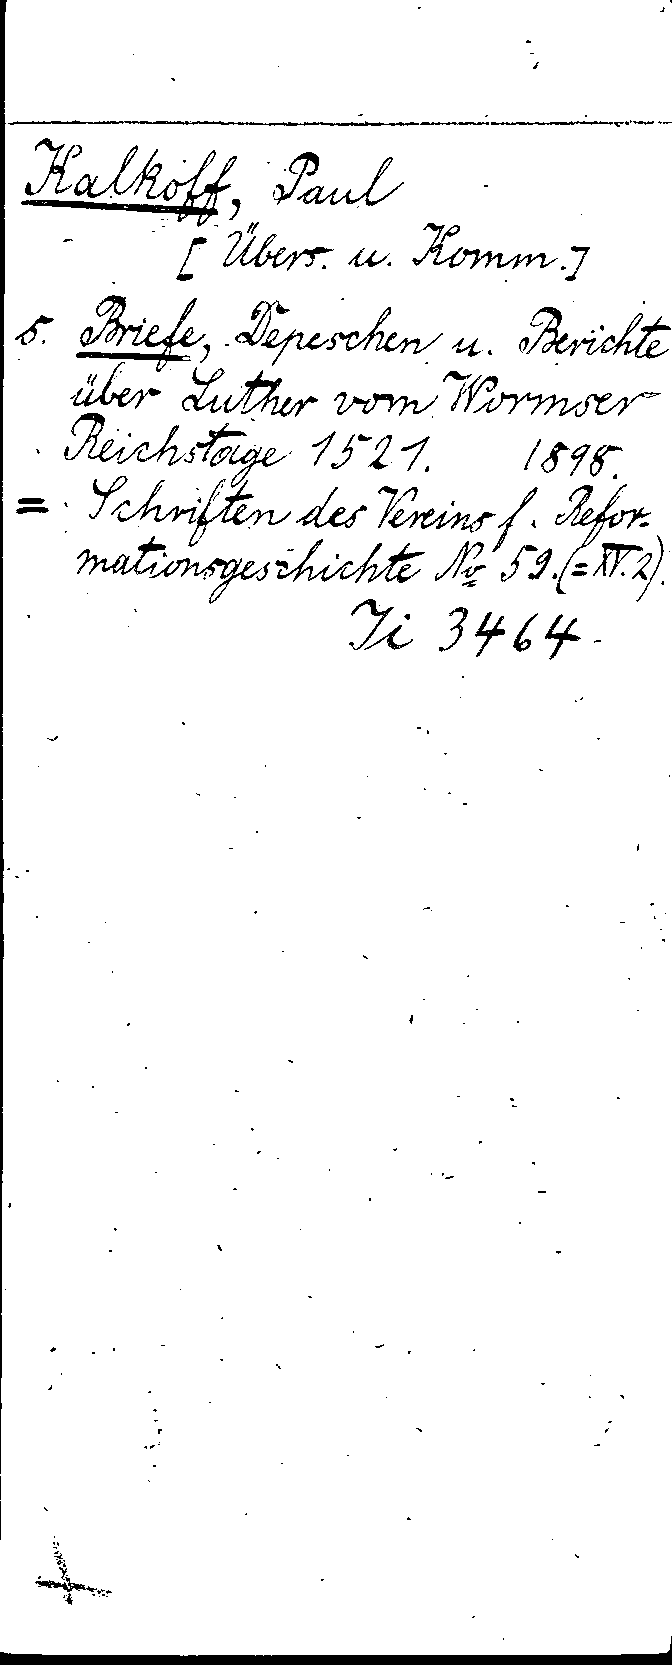 Kalkoff, Paul
[Übers. u. Komm.]
s. Briefe, Depeschen u. Berichte
über Luther vom Wormser
Reichstage 1521. 1898.
= Schriften des Vereins f. Refor-
mationsgeschichte No 59. (= XV.2).
Ji 3464.